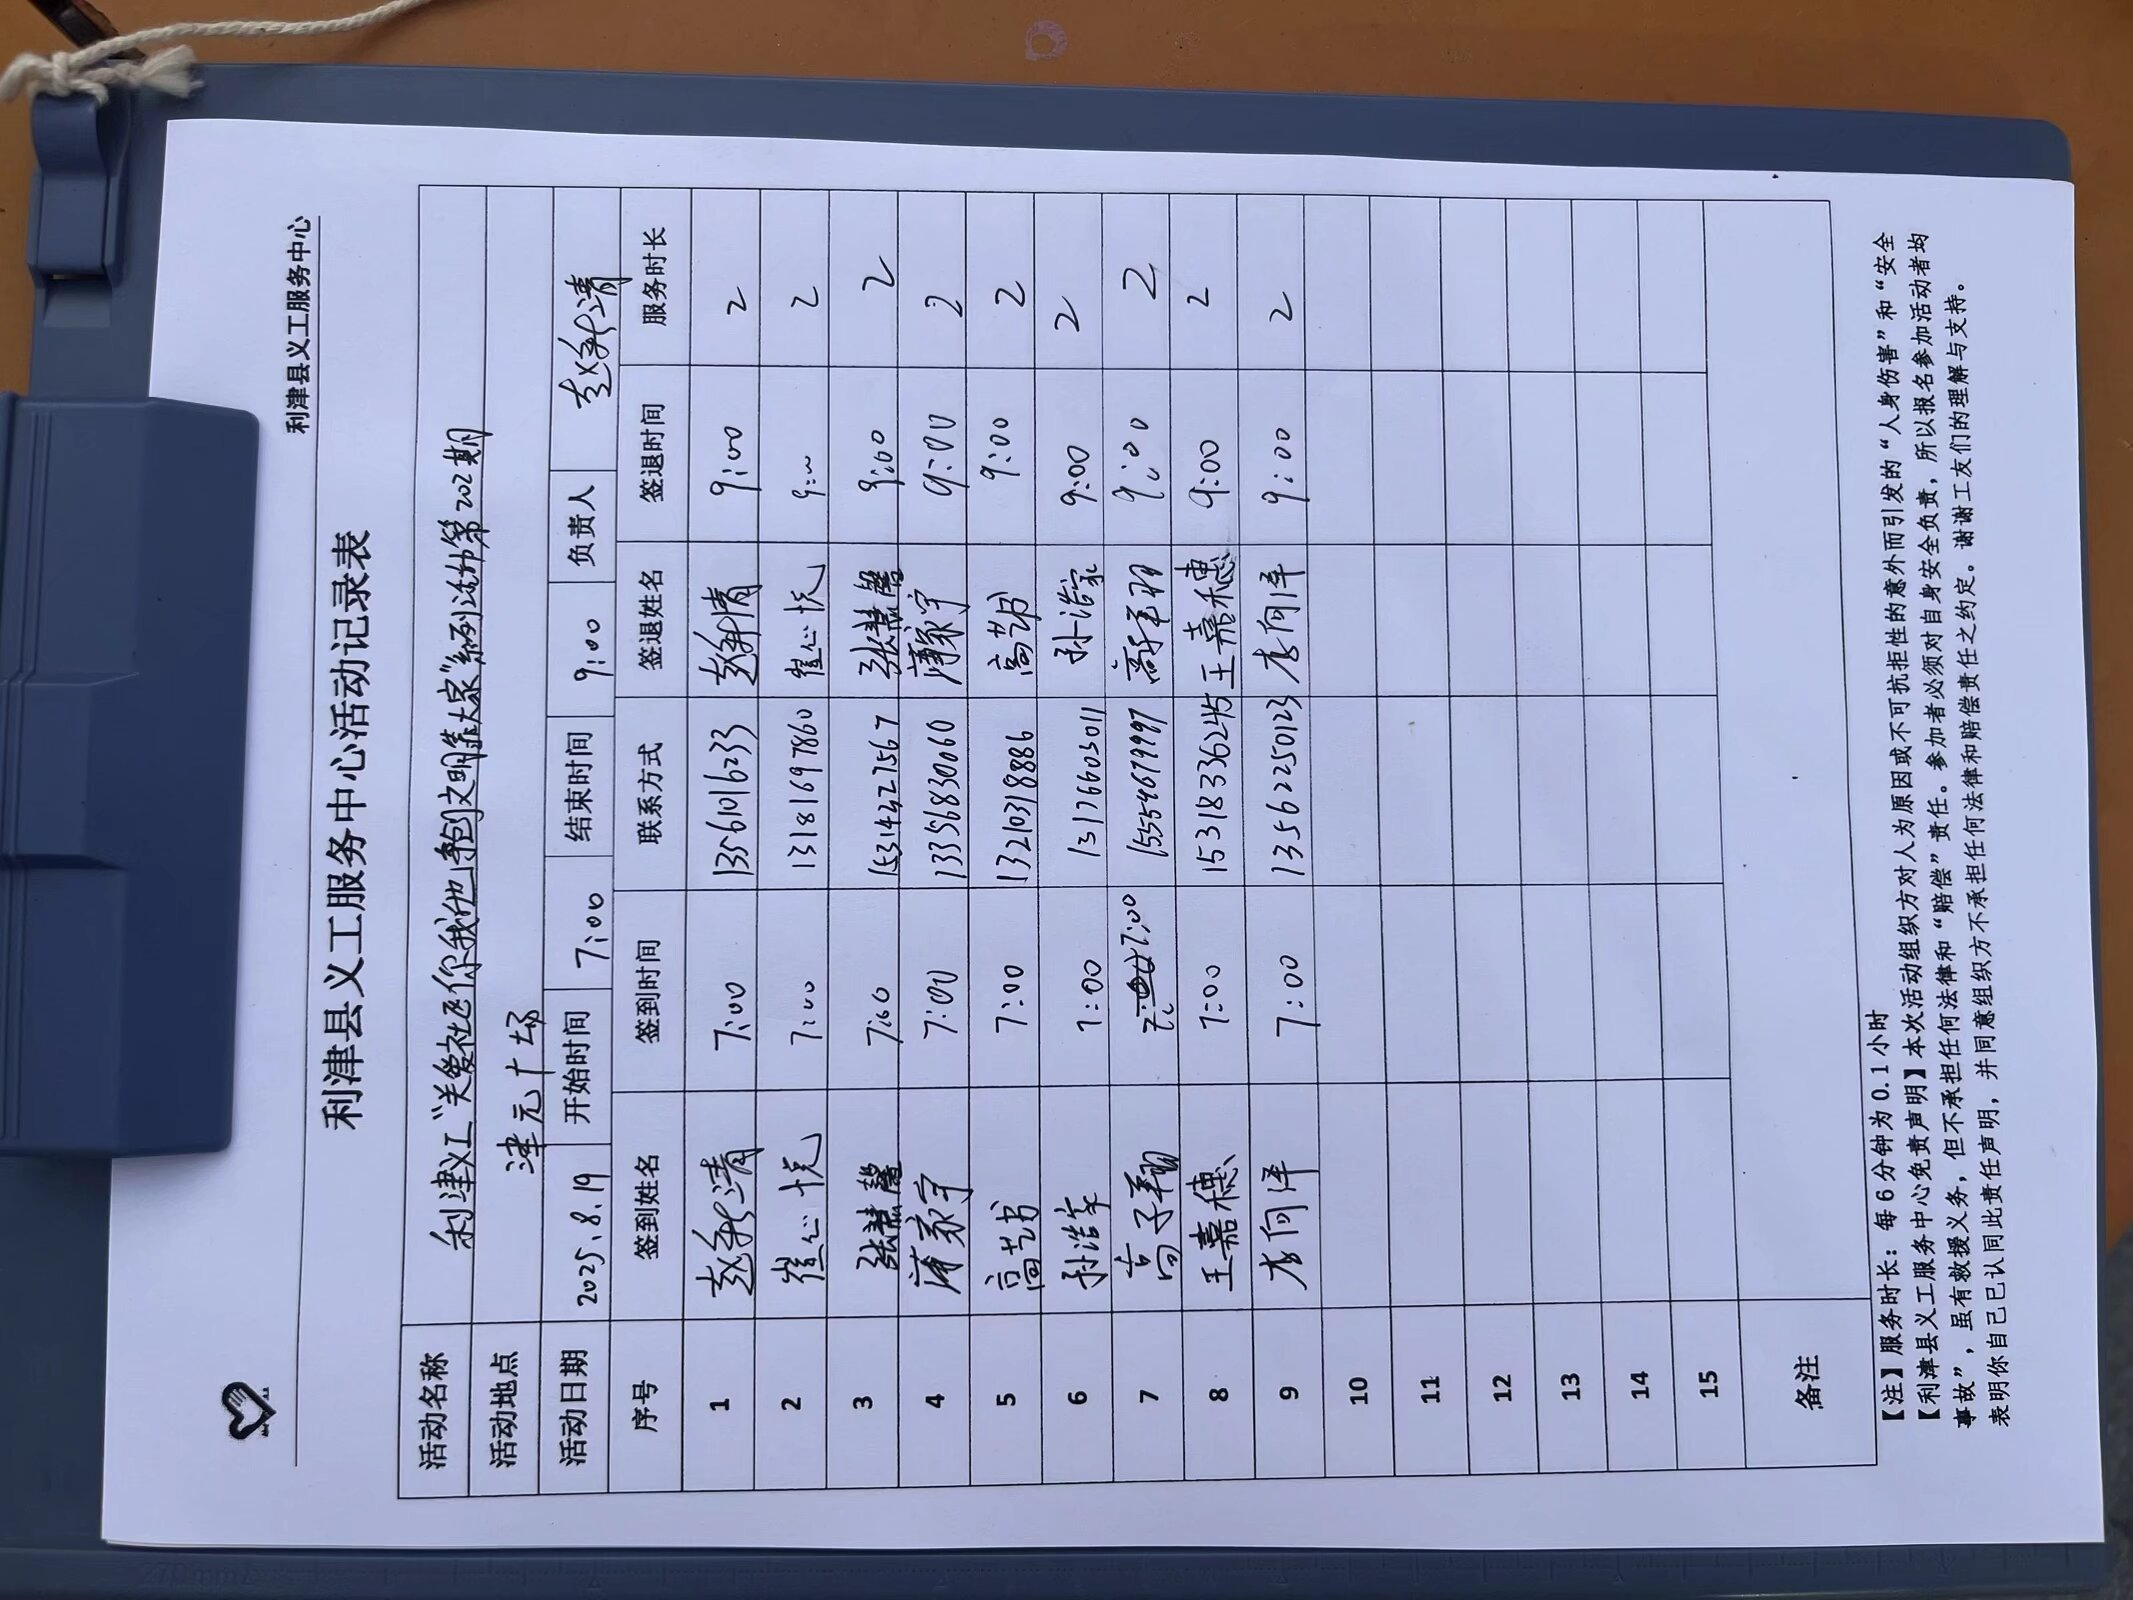 利津县义工服务中心
利津县义工服务中心活动记录表
活动名称 利津义工“关爱社区你我他 文明靠大家”系列活动第202期
活动地点 津元广场
活动日期 2025.8.19 开始时间 7:00 结束时间 9:00 负责人 赵希清
序号 签到姓名 签到时间 联系方式 签退姓名 签退时间 服务时长
1 7:00 13561016233 9:00 2
2 崔心悦 7:00 13181697860 崔心悦 9:00 2
3 张慧馨 7:00 15314227567 张慧馨 9:00 2
4 薄家宇 7:00 13356830060 薄家宇 9:00 2
5 高艺书 7:00 13210318886 高艺书 9:00 2
6 孙浩家 7:00 13176603011 孙浩家 9:00 2
7 高子翔 7:00 高子羽 9:00 2
8 王嘉穗 7:00 15318336245 王嘉穗 9:00 2
9 李向泽 7:00 13562250123 李向泽 9:00 2
10
11
12
13
14
15
备注
【注】服务时长：每6分钟为0.1小时
【利津县义工服务中心免责声明】本次活动组织方对人为原因或不可抗拒性的意外而引发的“人身伤害”和“安全
事故”，虽有救援义务，但不承担任何法律和“赔偿”责任。参加者必须对自身安全负责，所以报名参加活动者均
表明你自己已认同此责任声明，并同意组织方不承担任何法律和赔偿责任之约定。谢谢工友们的理解与支持。